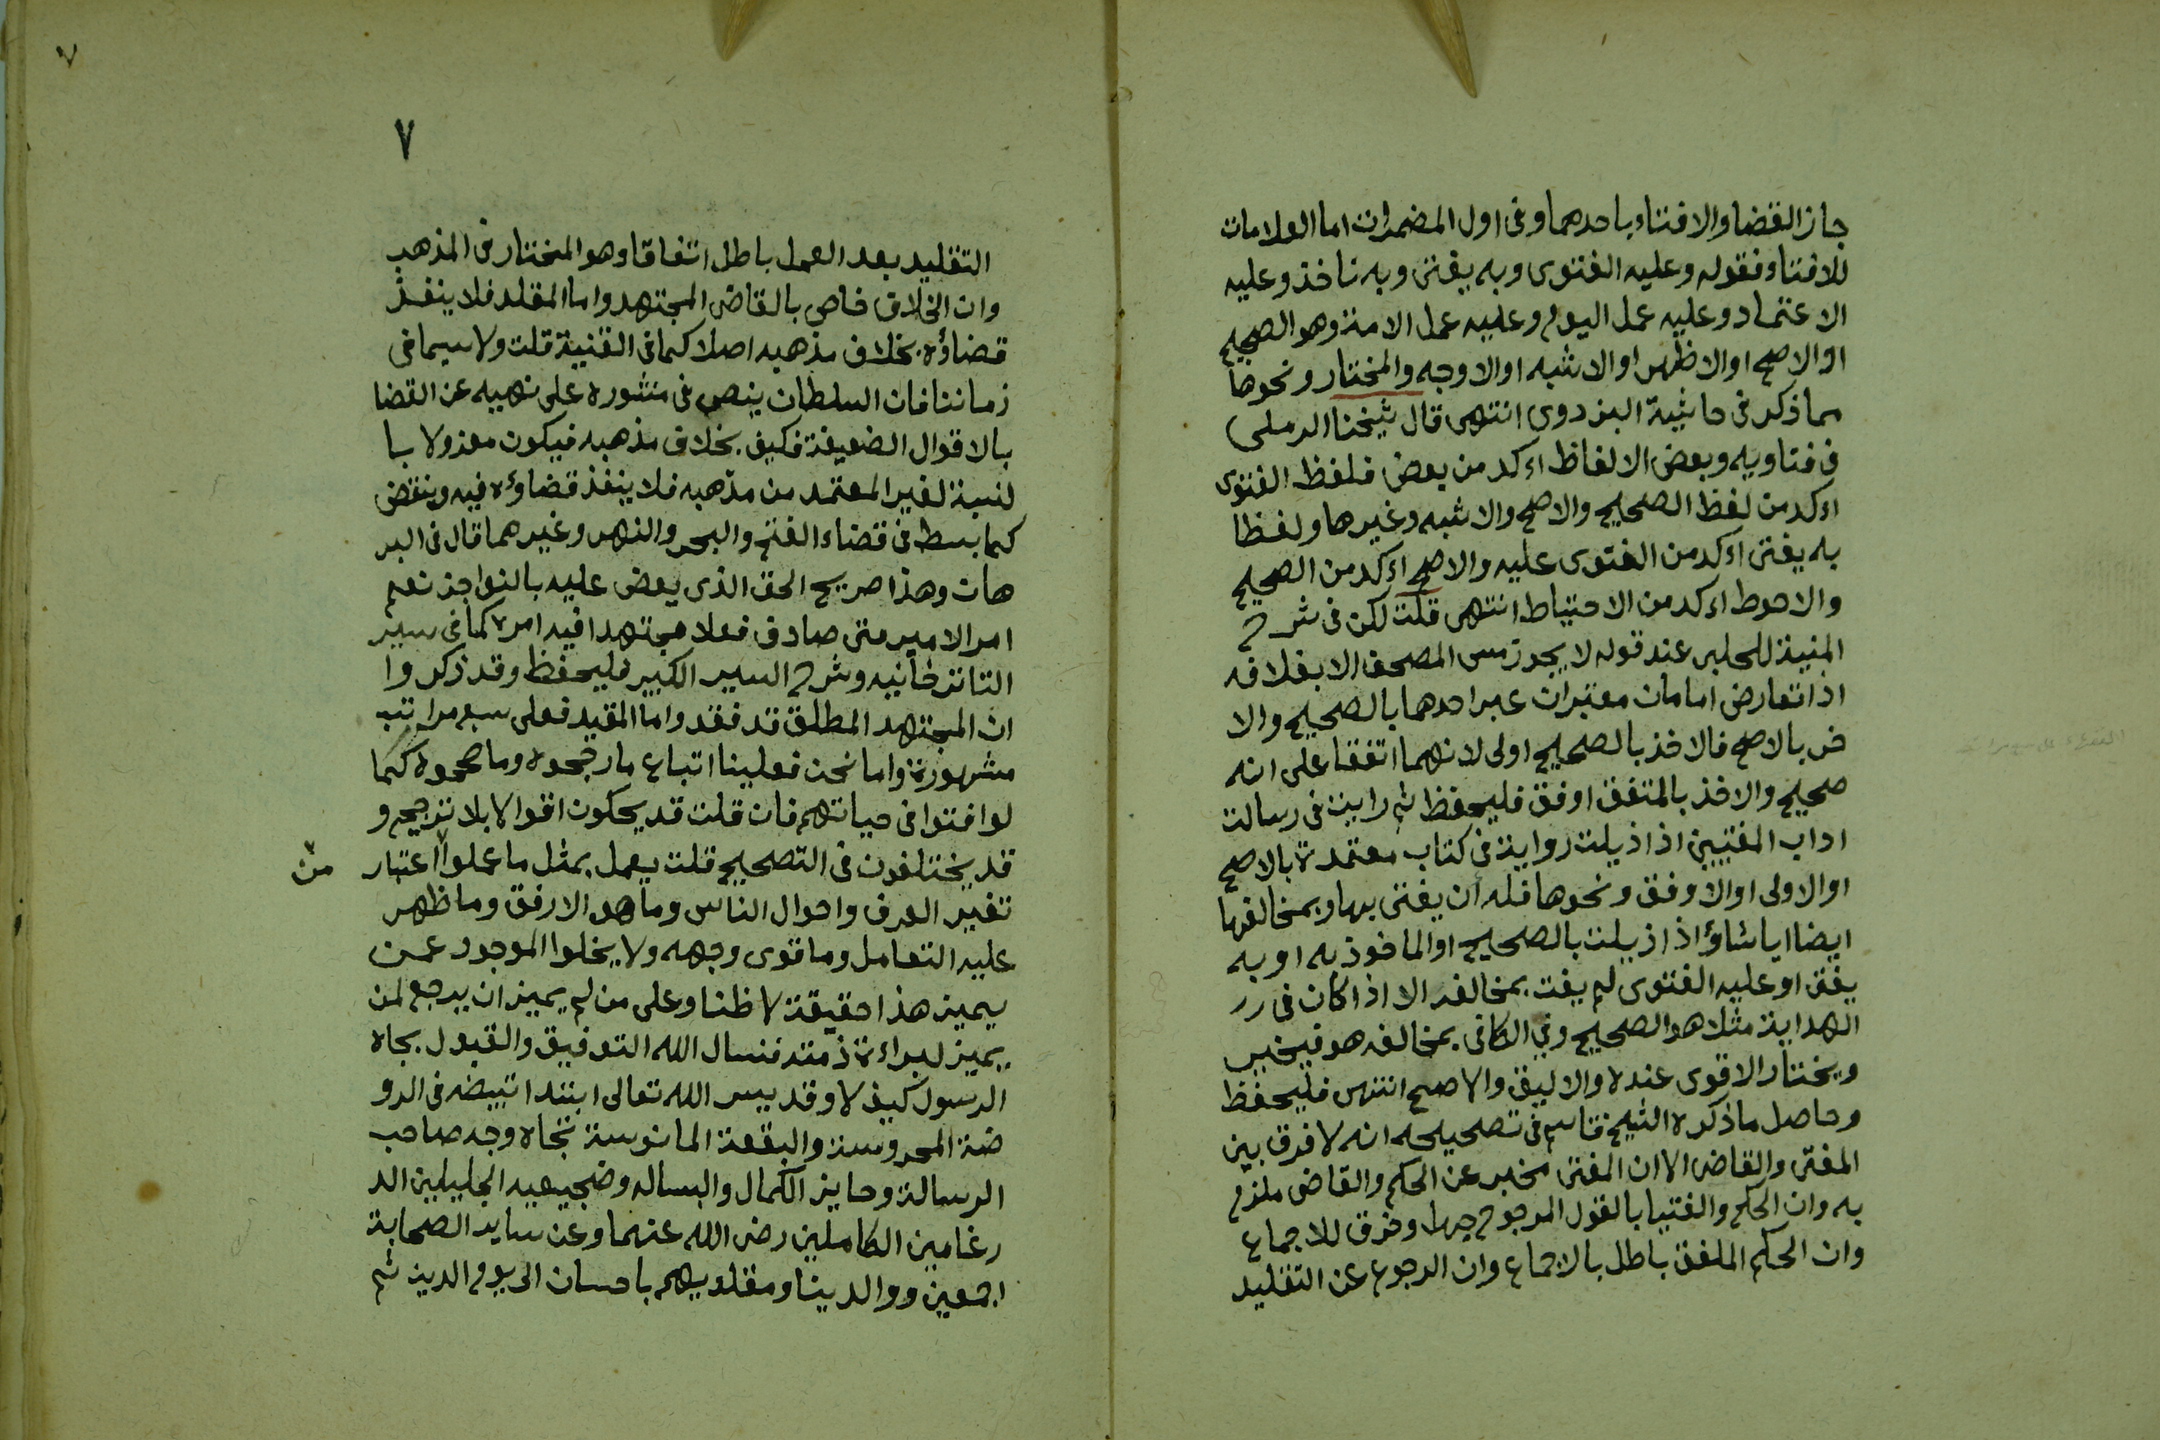 جاز القضا والافتاء باحدهما وفى اول المضمرات اما العلامات
للافتاء فقوله وعليه الفتوى وبه يفتى وبه ناخذ وعليه
الاعتماد وعليه عمل اليوم وعليه عمل الامة وهو الصحيح
او الاصح او الاظهر او الاشبه او الاوجه والمختار ونحوها
مما ذكر فى حاشية البزدوى انتهى قال شيخنا الرملى
فى فتاويه وبعض الالفاظ اكد من بعض فلفظ الفتوى
اكد من لفظ الصحيح والاصح والاشبه وغيرها ولفظا
به يفتى اكد من الفتوى عليه والاصح اكد من الصحيح
والاحوط اكد من الاحتياط انتهى قلت لكن فى شرح
المنية للحلبى عند قوله لا يجوز مس المصحف الا بغلافه
اذا تعارض امامان معتبران عبر احدهما بالصحيح والا
خر بالاصح فالاخذ بالصحيح اولى لانهما اتفقا على انه
صحيح والاخذ بالمتفق اوفق فليحفظ ثم رايت فى رسالت
اداب المفتيين اذا ذيلت رواية فى كتاب معتمدة بالاصح
او الاولى او الاوفق ونحوها فله ان يفتى بها وبمخالفها
ايضا ايا شاؤ اذا زيلت بالصحيح او الماخوذ به او به
يفتى او عليه الفتوى لم يفت بمخالفه الا اذا كان فى
الهداية مثلا هو الصحيح وفى الكافى بمخالفه هو فيخير
ويختار الاقوى عنده والاليق والاصح انتهى فليحفظ
وحاصل ما ذكره الشيخ قاسم فى تصحيحه انه لا فرق بين
المفتى والقاضى الا ان المفتى مخبر عن الحكم والقاضى ملزم
به وان الحكم والفتيا بالقول المرجوح جهل وخرق للاجماع
وان الحكم الملفق باطل بالاجماع وان الرجوع عن التقليد
٧
٧
التقليد بعد العمل باطل اتفاقا وهو المختار فى المذهب
وان الخلاف خاص بالقاضى المجتهد واما المقلد فلا ينفذ
قضاؤه بخلاف مذهبه اصلا كما فى القنية قلت ولا سيما فى
زماننا فان السلطان ينص فى منشوره على نهيه عن القضا
بالاقوال الضعيفة فكيف بخلاف مذهبه فيكون معزولا با
لنسبة لغير المعتمد من مذهبه فلا ينفذ قضاؤه فيه وينقض
كما بسط فى قضاء الفتح والبحر والنهر وغيرهما قال فى البر
هان وهذا صريح الحق الذى يعض عليه بالنواجذ نعم
امر الامير متى صادف فعلا مجتهدا فيه امره كما فى سير
التاتر خانيه وشرح السير الكبير فليحفظ وقد ذكروا
ان المجتهد المطلق قد فقد واما المقيد فعلى سبع مراتب
مشهورة واما نحن فعلينا اتباع ما رجحوه وما صححوه كما
لو افتوا فى حياتهم فان قلت قد يحكون اقوالا بلا ترجيح و
قد يختلفون فى التصحيح قلت يعمل بمثل ما عملوا اعتبار
من
تغير العرف واحوال الناس وما هو الارفق وما ظهر
عليه التعامل وما قوى وجهه ولا يخلوا الموجود عمن
يميز هذا حقيقة لا ظنا وعلى من لم يميز ان يرجع لمن
يميز لبراءة ذمته فنسال الله التوفيق والقبول بجاه
الرسول كيف لا وقد يسر الله تعالى ابتدا تبييضه فى الرو
ضة المحروسة والبقعة المانوسة تجاه وجه صاحب
الرسالة وحايز الكمال والبساله وضجيعيه الجليلين الد
رغامين الكاملين رضى الله عنهما وعن ساير الصحابة
اجمعين ووالدينا ومقلديهم باحسان الى يوم الدين ثم